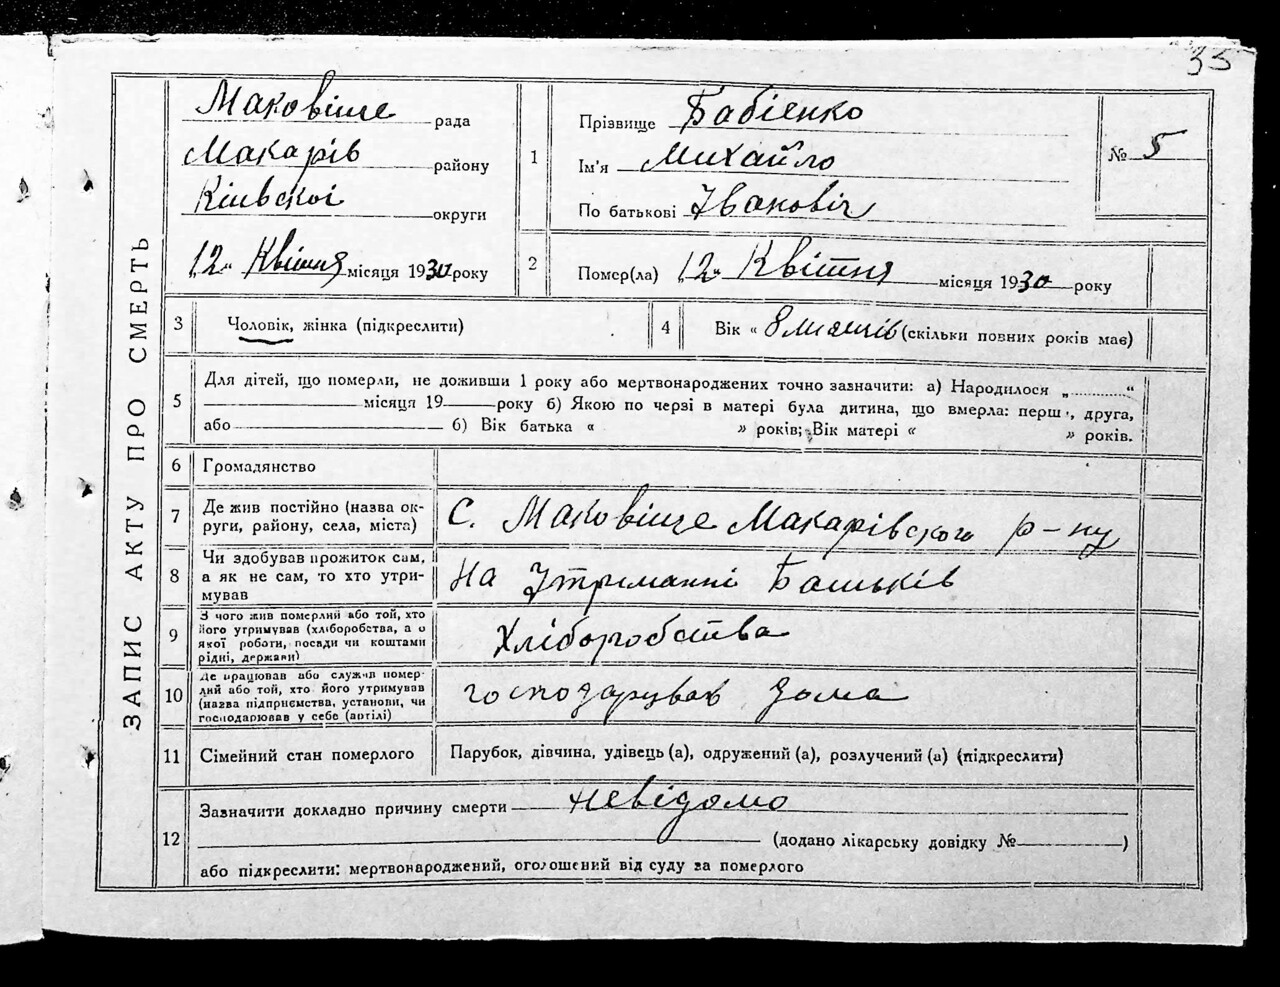 35
ЗАПИС АКТУ ПРО СМЕРТЬ
Маковіще рада
Макарів району
Київскої округи
12 Квітня місяця 1930 року
1
Прізвище Бабієнко
Ім'я Михайло
По батькові Івановіч
№ 5
2
Помер(ла) 12 Квітня місяця 1930 року
3
Чоловік, жінка (підкреслити)
4
Вік « 8 місяців (скільки повних років мав)
5
Для дітей, що померли, не доживши 1 року або мертвонароджених точно зазначити: а) Народилося „ “
місяця 19 року б) Якою по черзі в матері була дитина, що вмерла: перш, друга,
або б) Вік батька « » років; Вік матері « » років.
6
Громадянство
7
Де жив постійно (назва ок-
руги, району, села, міста)
с. Маковіще Макарівского р-ну
8
Чи здобував прожиток сам,
а як не сам, то хто утри-
мував
На Утриманні Батьків
9
З чого жив померлий або той, хто
його утримував (хліборобства, а о
якої роботи, посади чи коштами
рідні, держави)
Хліборобства
10
Де працював або служив помер-
лий або той, хто його утримував
(назва підприємства, установи, чи
господарював у себе (артілі)
господарував дома
11
Сімейний стан померлого
Парубок, дівчина, удівець (а), одружений (а), розлучений (а) (підкреслити)
12
Зазначити докладно причину смерти невідомо
(додано лікарську довідку № )
або підкреслити: мертвонароджений, оголошений від суду за померлого